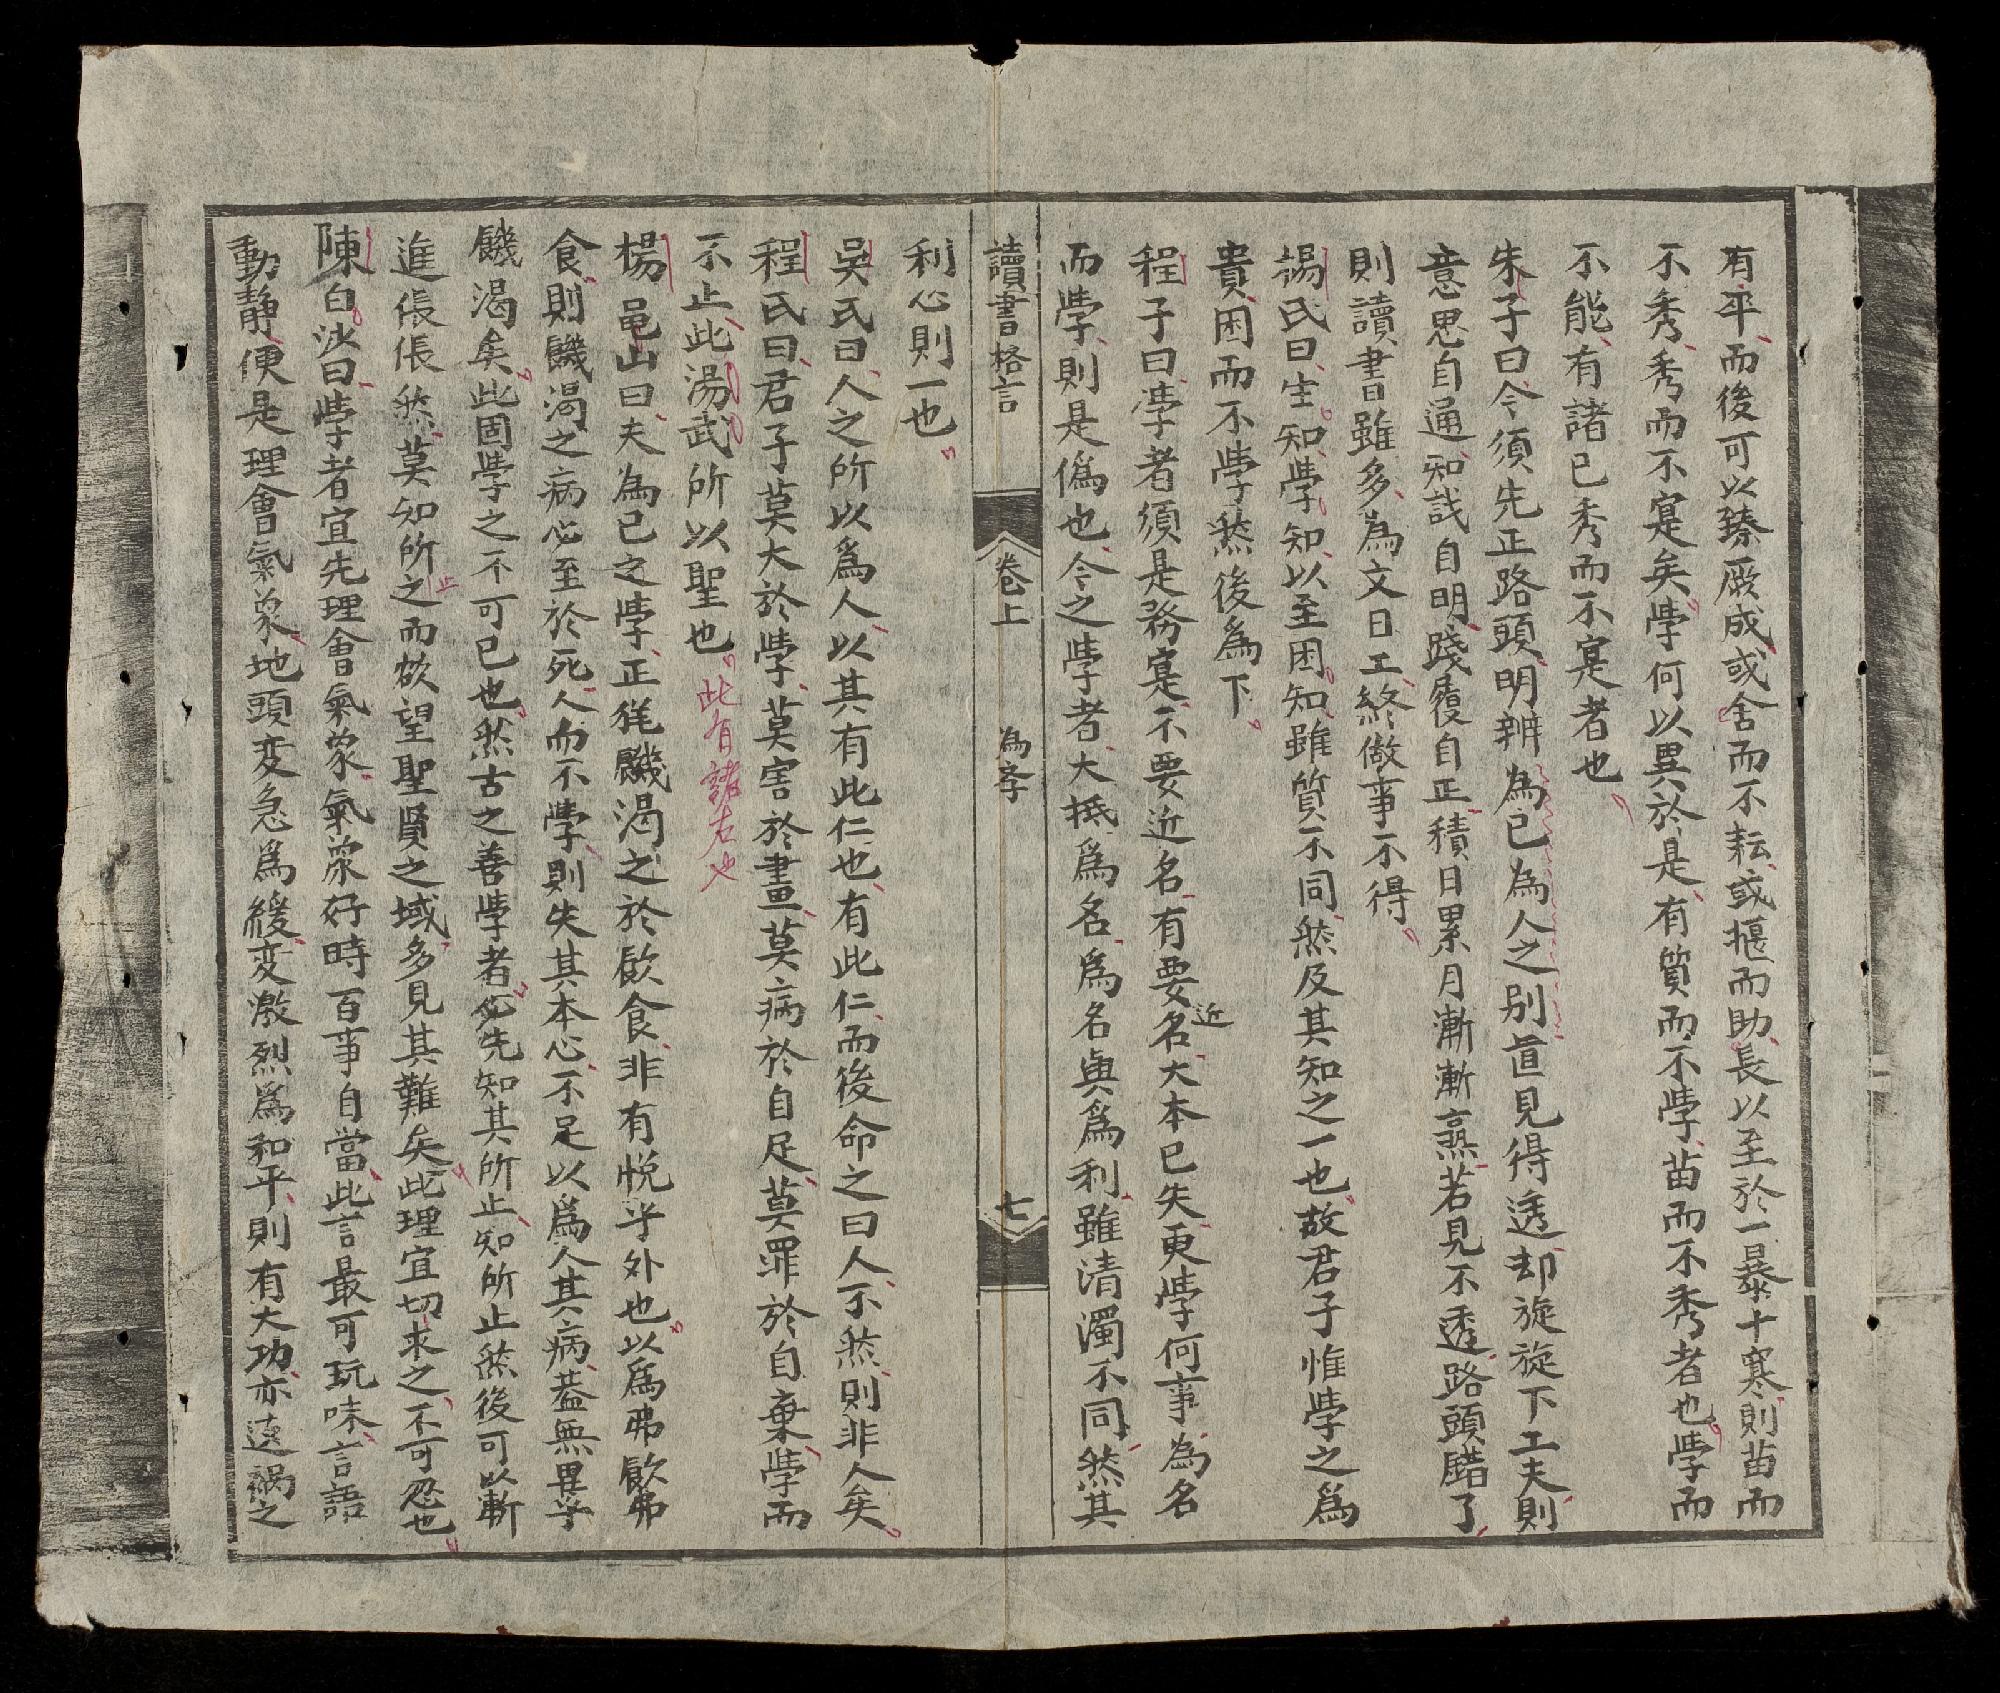 有平而後可以臻厥成或舍而不耘或揠而助長以至於一暴十寒則苗而
不秀秀而不寔矣學何以異於是有質而不學苗而不秀者也學而
不能有諸已秀而不寔者也
朱子曰今須先正路頭明辨為已為人之别直見得透却旋旋下工夫則
意思自通知識自明踐履自正積日累月漸漸熹若見不透路頭䦉了
則讀書雖多為文日工終做事不得
楊氏曰生知學知以至困知雖質不同然及其知之一也故君子惟學之爲
貴困而不學然後爲下
程子曰學者須是務寔不要近名有要近名大本已失更學何事為名
而學則是僞也今之學者大抵爲名爲名與爲利雖清濁不同然其
讀書格言 卷上 為斈 七
利心則一也
吳氏曰人之所以爲人以其有此仁也有此仁而後命之曰人不然則非人矣
程氏曰君子莫大於學莫害於畫莫病於自足莫罪於自棄學而
不止此湯武所以聖也此有諸右也
楊龜山曰夫為已之學正猶饑渴之於飮食非有悅乎外也以爲弗飮弗
食則饑渴之病必至於死人而不學則失其本心不足以爲人其病葢無異乎
饑渴矣此固學之不可已也然古之善學者必先知其所止知所止然後可以漸
進倀倀然莫知所之止而欲望聖賢之域多見其難矣此理宜切求之不可忽也
陳白沙曰學者宜先理會氣象氣象好時百事自當此言最可玩味言語
動静便是理會氣象地頭变急爲緩变激烈爲和平則有大功亦遠禍之